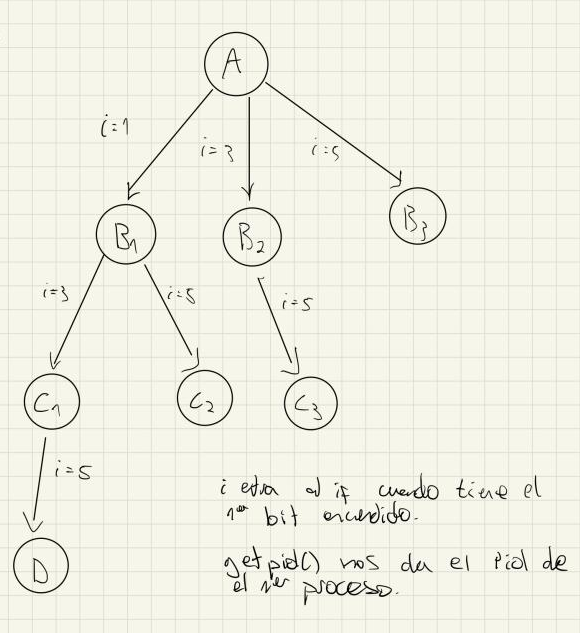 A
i=1
i=3
i=5
B1
B2
B3
i=3
i=5
i=5
C1
C2
C3
i=5
D
i entra al if cuando tiene el
1er bit encendido.
getpid() nos da el Pid de
el 1er proceso.